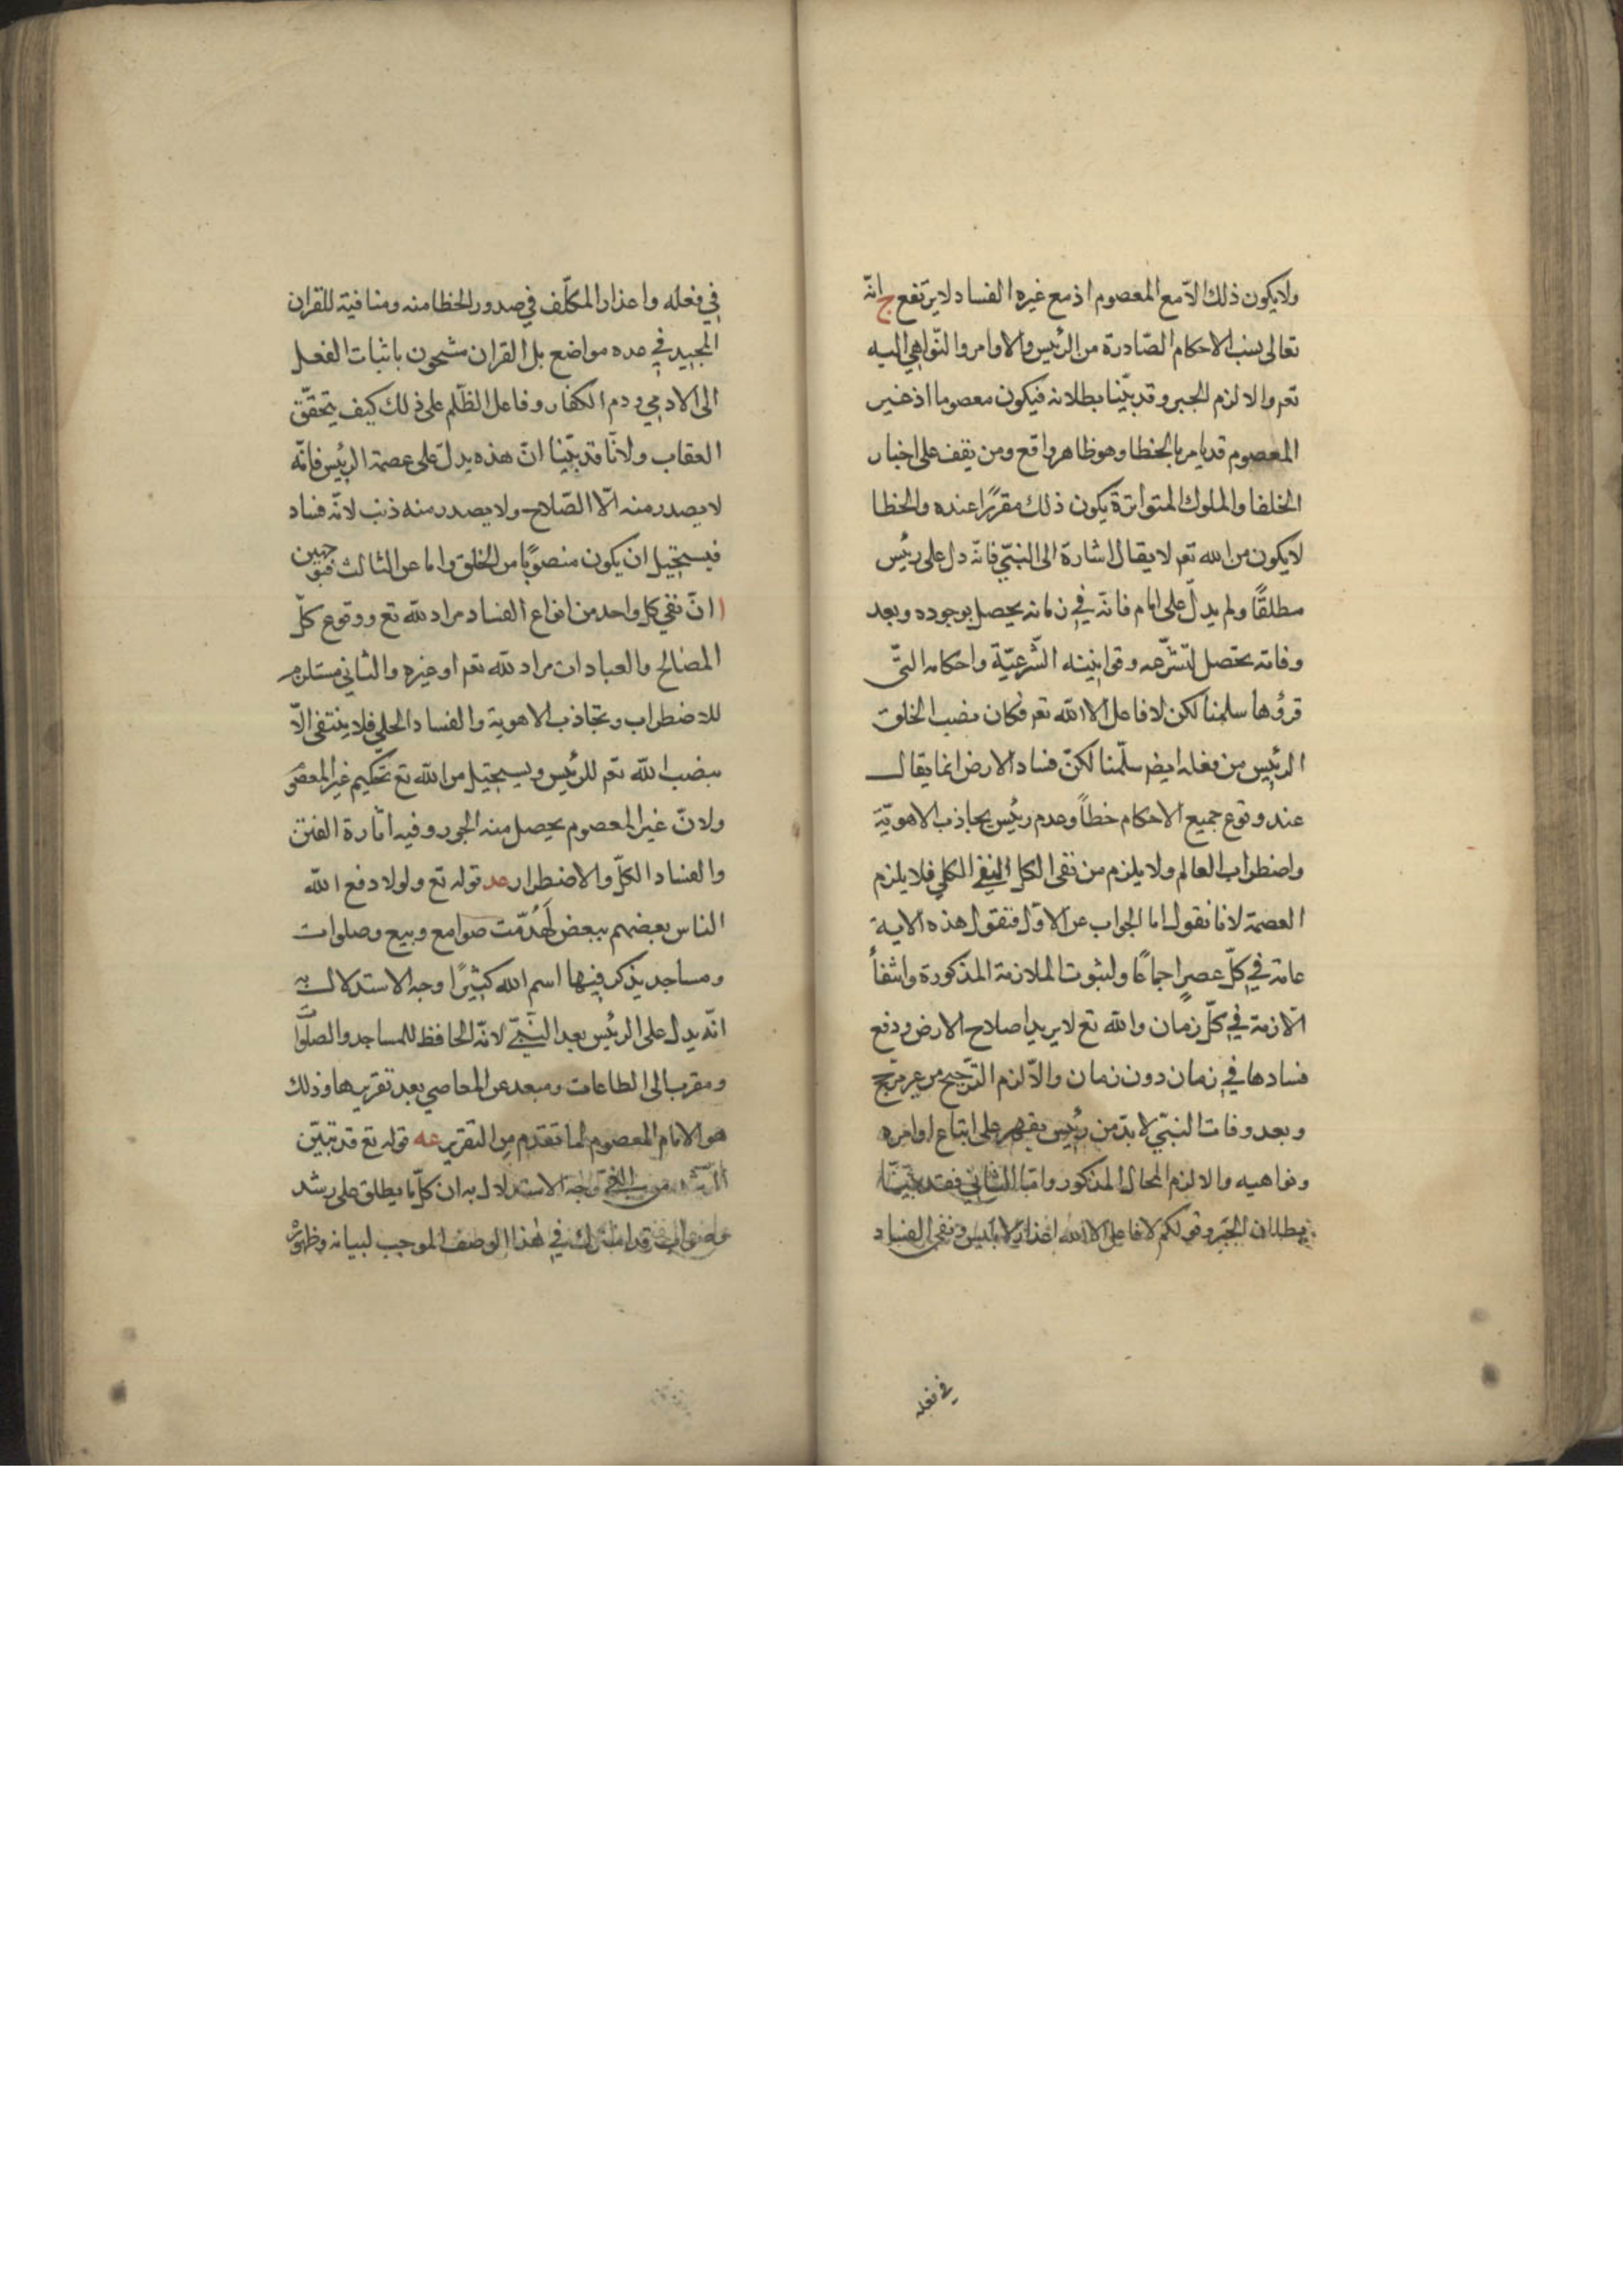 ولا يكون ذلك الا مع المعصوم اذ مع غيره الفساد لا يرتفع ج انّه
تعالى نسب الاحكام الصّادرة من الرئيس والاوامر والنّواهي اليه
تعم والا لزم الجبر وقد بيّنا بطلانه فيكون معصوما اذ غير
المعصوم قد يامر بالخطا وهو ظاهر واقع ومن يقف على اخبار
الخلفا والملوك المتواترة يكون ذلك مقررًا عنده والخطا
لا يكون من الله تعم لا يقال اشارة الى النبيّ فانّه دل على رئيس
مطلقًا ولم يدلّ على امام فانّه في زمانه يحصل بوجوده وبعد
وفاته يحصل لتشرّعه وقوانينه الشّرعيّة واحكامه التّى
قرؤها سلمنا لكن لا فاعل الا الله تعم فكان نصب الخلق
الرئيس من فعله ايضم سلّمنا لكنّ فساد الارض انما يقال
عند وقوع جميع الاحكام خطأً وعدم رئيس يجاذب الاهويّة
واضطراب العالم ولا يلزم من نفى الكل النفى الكلي فلا يلزم
العصمة لانا نقول اما الجواب عن الاوّل فنقول هذه الاية
عامة في كلّ عصرٍ اجماعًا ولثبوت الملازمة المذكورة وانتفأ
اللازمة في كلّ زمان والله تع لا يريد اصلاح الارض ودفع
فسادها في زمان دون زمان والّا لزم التّرجيح من غير مرجح
وبعد وفات النبيّ لا بدّ من رئيس يقهر على اتباع اوامره
ونواهيه والا لزم المحال المذكور وامّا الثاني فقد بيّنّا
بطلان الجبر وقولكم لا فاعل الا الله اعذار لابليس ونفى الفساد
في فعله
في فعله واعذار المكلّف في صدور الخطا منه ومنافية للقران
المجيد في عده مواضع بل القران مشحون باثبات الفعل
الى الادمي وذم الكفار وفاعل الظّلم على ذلك كيف يتحقّق
العقاب ولانّا قد بيّنا انّ هذه يدلّ على عصمة الرئيس فانّه
لا يصدر منه الّا الصّلاح ولا يصدر منه ذنب لانّه فساد
فيستحيل ان يكون منصوبًا من الخلق واما عن الثالث فبوجهين
ا انّ نفي كل واحد من انواع الفساد مراد لله تع ووقوع كلّ
المصالح والعبادات مراد لله تعم او غيره والثاني مستلزم
للاضطراب وتجاذب الاهوية والفساد الحلي فلا ينتفى الّا
بنصب الله تعم للرئيس ويستحيل من الله تع تحكيم غير المعصوم
ولانّ غير المعصوم يحصل منه الجور وفيه اثارة الفتن
والفساد الكلّ والاضطرار عد قوله تع ولولا دفع الله
الناس بعضهم ببعض لَهُدّمت صوامع وبيع وصلوات
ومساجد يذكر فيها اسم الله كثيرًا وجه الاستدلال به
انّه يدل على الرئيس بعد النبيّ لانّه الحافظ للمساجد والصلوات
ومقرب الى الطاعات ومبعد عن المعاصي بعد تقريرها وذلك
هو الامام المعصوم لما تقدم من التقرير عه قوله تع قد تبيّن
الرّشد من الغيّ وجه الاستدلال به ان كلّ ما يطلق على رشد
وصواب قد اشترك في هذا الوصف الموجب لبيانه وظهوره